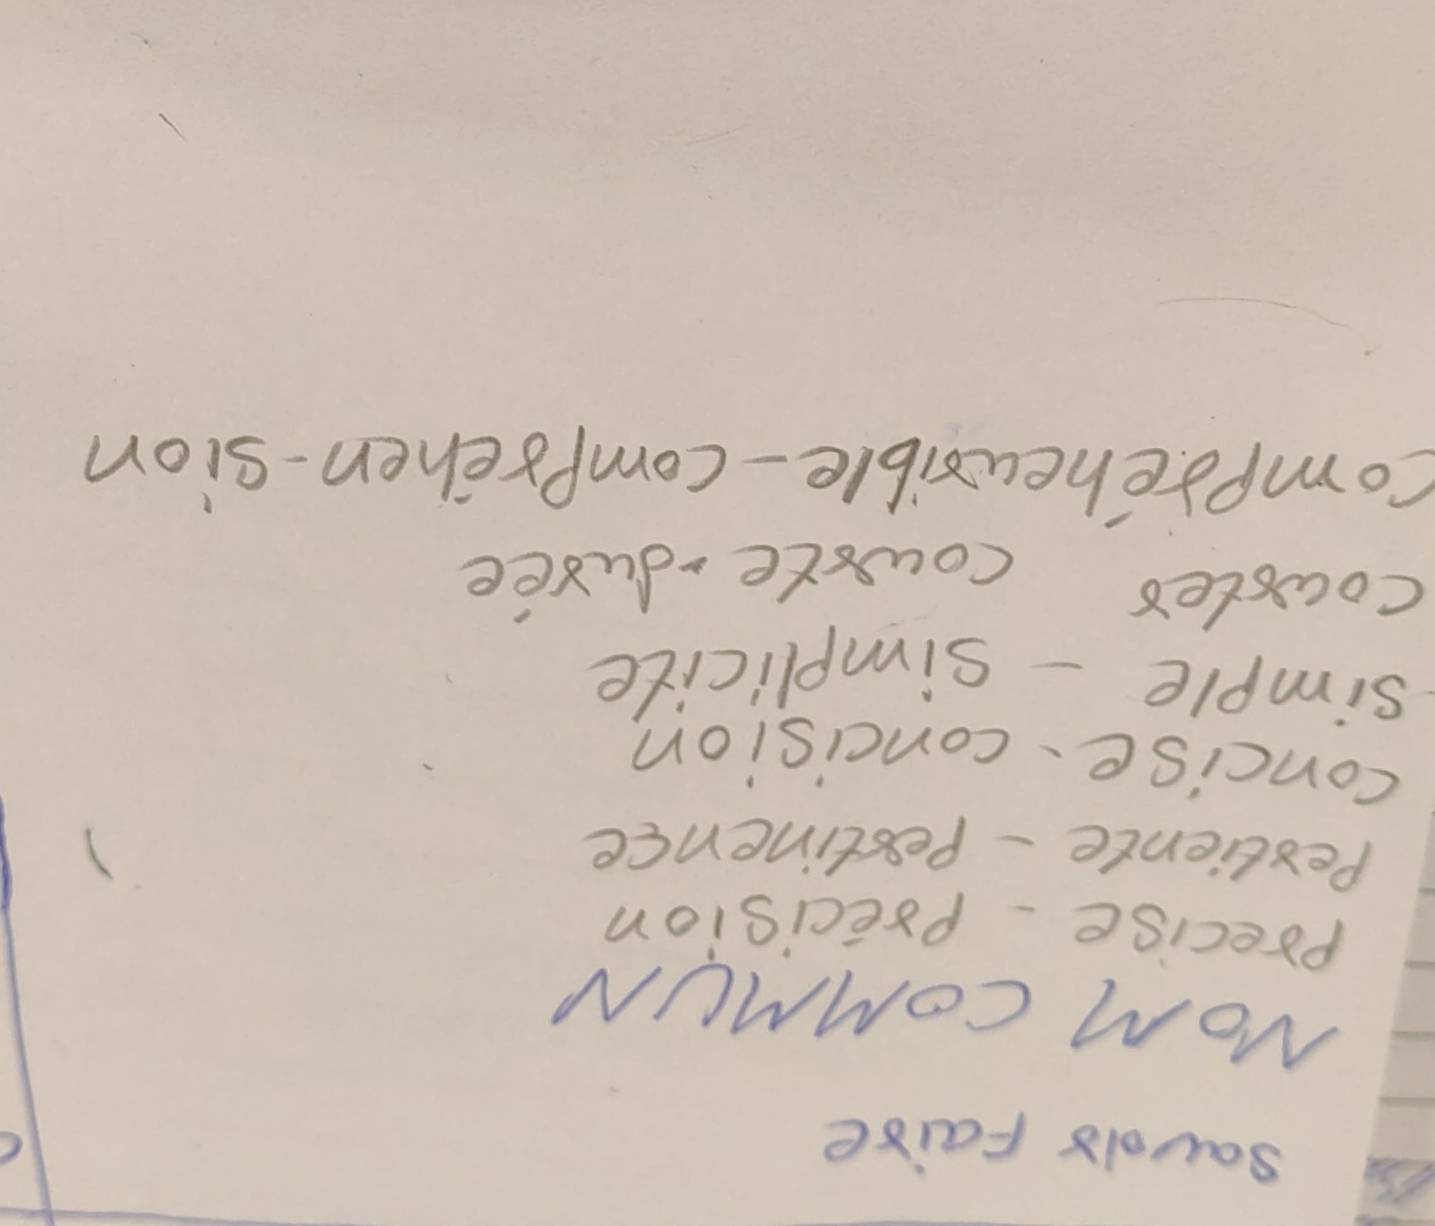 savoir Faire
NOM COMMUN
precise - précision
pertiente - pertinence
concise - concision
simple - simplicite
courter courte - durée
compréhensible - compréhen-sion